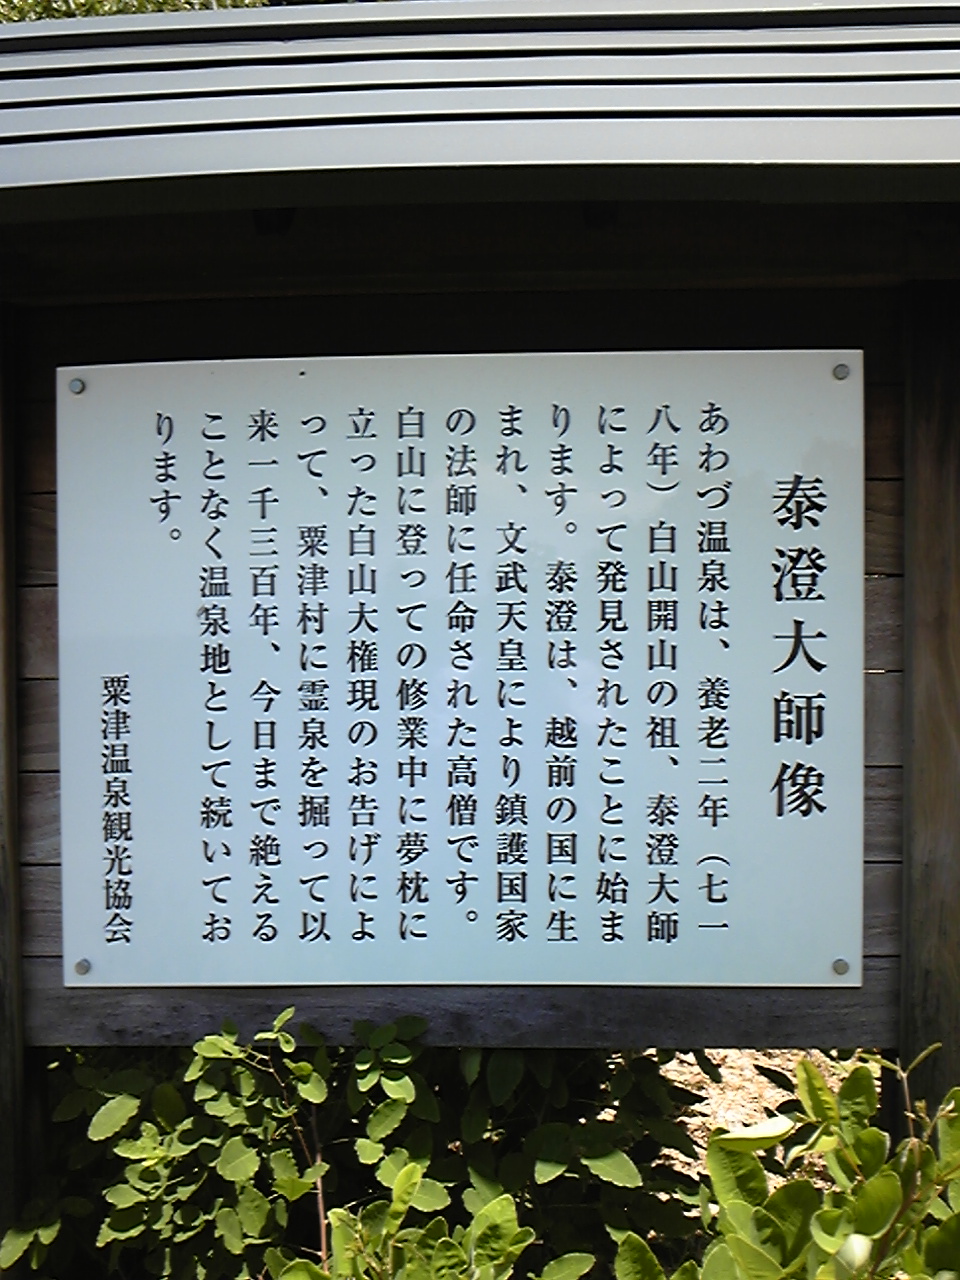 泰澄大師像
あわづ温泉は、養老二年（七一
八年）白山開山の祖、泰澄大師
によって発見されたことに始ま
ります。泰澄は、越前の国に生
まれ、文武天皇により鎮護国家
の法師に任命された高僧です。
白山に登っての修業中に夢枕に
立った白山大権現のお告げによ
って、粟津村に霊泉を掘って以
来一千三百年、今日まで絶える
ことなく温泉地として続いてお
ります。
粟津温泉観光協会